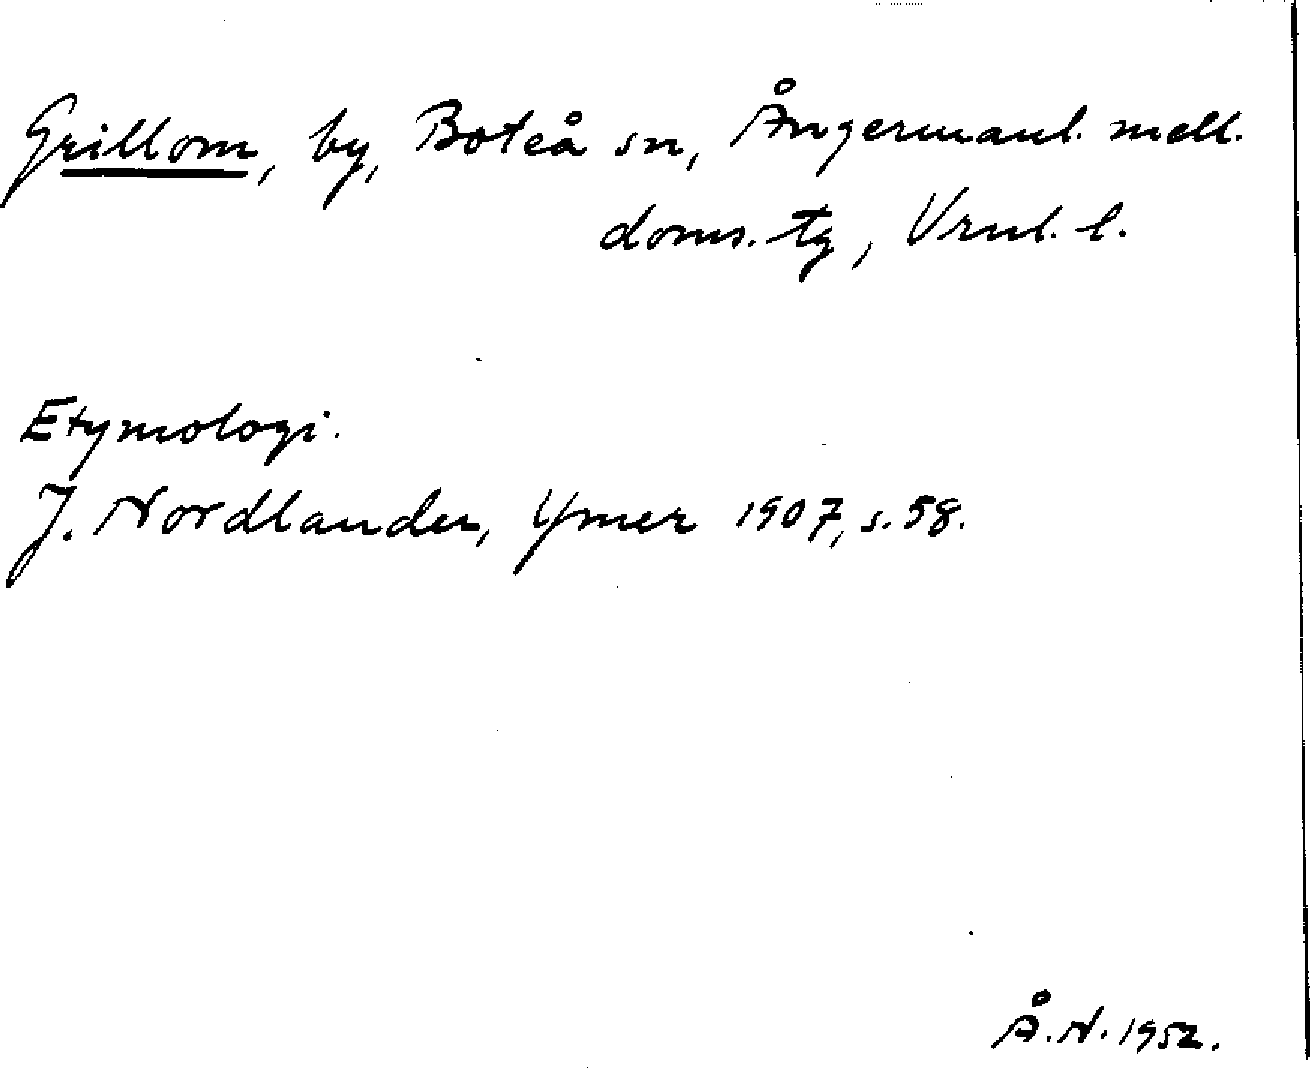 Grillom, by, Boteå sn, Ångermanl. mell.
doms. tg, Vrnl. l.
Etymologi.
J. Nordlander, Ymer 1907, s. 58.
Å.N. 1952.